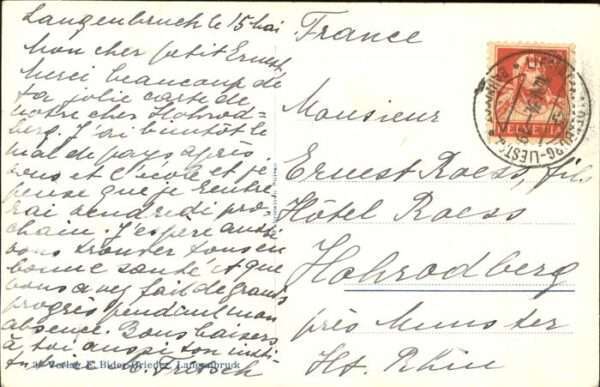 Langenbruck le 15 Mai
Mon cher petit Ernest,
Merci beaucoup de
ta jolie carte de
notre cher Hohrod-
berg. J'ai bientôt le
mal de pays après
vous et l'école et je
pense que je rentre-
rai vendredi pro-
chain. J'espère aussi
vous trouver tous en
bonne santé et que
vous avez fait de grands
progrès pendant mon
absence. Bons baisers
à toi aussi ton insti-
tutrice E. Fretsch
Verlag E. Bider-Brieder, Langenbruck
France
HELVETIA
Monsieur
Ernest Roess, fils
Hôtel Roess
Hohrodberg
près Munster
Ht. Rhin